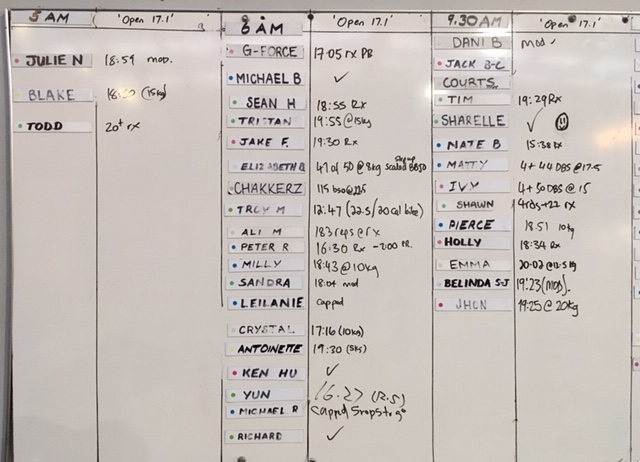 5 AM 'Open 17.1'
JULIE N 18:59 mod.
BLAKE (15kg)
TODD 20+ rx
6 AM 'Open 17.1'
G-FORCE 17:05 rx PB
MICHAEL B ✓
SEAN H 18:55 Rx
TRISTAN 19:55 @15kg
JAKE F. 19:30 Rx
ELIZABETH B 47 of 50 @ 8kg step up scaled BBJO
CHAKKERZ 115 bso@22.5
TROY M 12:47 (22.5/20 cal bike)
ALI M 183 reps @ rx
PETER R 16:30 Rx -2:00 PR.
MILLY 18:43 @ 10kg
SANDRA 18:04 mod
LEILANIE capped
CRYSTAL 17:16 (10kg)
ANTOINETTE 19:30 (5kg)
KEN HU ✓
YUN 16.27 (12.5)
MICHAEL R Capped 5 reps to go
RICHARD ✓
9.30AM 'Open 17.1'
DANI B mod ✓
JACK B-C
COURTS
TIM 19:29 Rx
SHARELLE ✓
NATE B 15:38 rx
MATTY 4 + 44 DBS @ 17.5
IVY 4 + 50 DBS @ 15
SHAWN 4rds+22 rx
PIERCE 18.51 10kg
HOLLY 18:34 Rx
EMMA 20:02 @12.5kg
BELINDA S-J 19:23 (mod).
JHON 19:25 @ 20kg